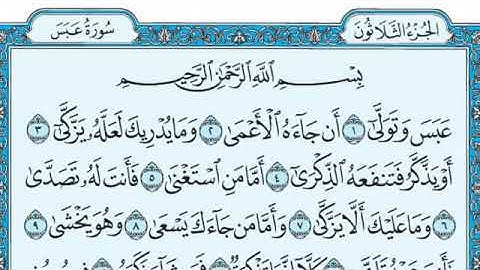 الجُزْءُ الثَّلَاثُونَ
سُورَةُ عَبَسَ
بِسْمِ اللَّهِ الرَّحْمَٰنِ الرَّحِيمِ
عَبَسَ وَتَوَلَّىٰ ١ أَن جَاءَهُ الْأَعْمَىٰ ٢ وَمَا يُدْرِيكَ لَعَلَّهُ يَزَّكَّىٰ ٣
أَوْ يَذَّكَّرُ فَتَنفَعَهُ الذِّكْرَىٰ ٤ أَمَّا مَنِ اسْتَغْنَىٰ ٥ فَأَنتَ لَهُ تَصَدَّىٰ
٦ وَمَا عَلَيْكَ أَلَّا يَزَّكَّىٰ ٧ وَأَمَّا مَن جَاءَكَ يَسْعَىٰ ٨ وَهُوَ يَخْشَىٰ ٩